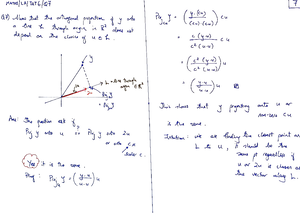 Q#) Show that the orthogonal projection of y onto
a line L through origin in R² does not
depend on the choice of u ∈ L.
y
2u
L → line through
Proj y
Ans: the question asks if,
Proj y onto u = Proj y onto 2u
or onto cu
Yes! it is the same.
Proof: Proj y = (y·u / u·u) u
7
Proj y = (y·(cu) / (cu)·(cu)) cu
= c(y·u) / c²(u·u) cu
= (c²(y·u) / c²(u·u)) u
= (y·u / u·u) u
This shows that y projecting onto u or
cu
is the same.
Intuition: we are finding the closest point on
L to y, it should be the
same regardless if
u or 2u is chosen as
the vector along L.